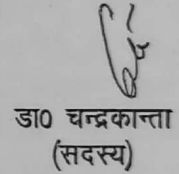 डा0 चन्द्रकान्ता
(सदस्य)